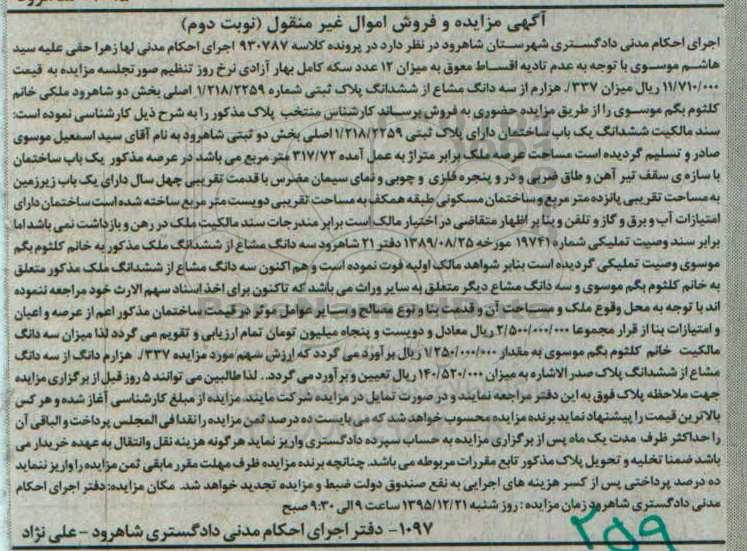 آگهی مزایده و فروش اموال غیر منقول (نوبت دوم)
اجرای احکام مدنی دادگستری شهرستان شاهرود در نظر دارد در پرونده کلاسه ۹۳۰۷۸۷ اجرای احکام مدنی لها زهرا حقی علیه سید
هاشم موسوی با توجه به عدم تادیه اقساط معوق به میزان ۱۲ عدد سکه کامل بهار آزادی نرخ روز تنظیم صورتجلسه مزایده به قیمت
۱۱/۷۱۰/۰۰۰ ریال میزان ۳۳۷/. هزارم از سه دانگ مشاع از ششدانگ پلاک ثبتی شماره ۱/۲۱۸/۲۲۵۹ اصلی بخش دو شاهرود ملکی خانم
کلثوم بگم موسوی را از طریق مزایده حضوری به فروش برساند کارشناس منتخب پلاک مذکور را به شرح ذیل کارشناسی نموده است:
سند مالکیت ششدانگ یک باب ساختمان دارای پلاک ثبتی ۱/۲۱۸/۲۲۵۹ اصلی بخش دو ثبتی شاهرود به نام آقای سید اسمعیل موسوی
صادر و تسلیم گردیده است مساحت عرصه ملک برابر متراژ به عمل آمده ۳۱۷/۷۲ متر مربع می باشد در عرصه مذکور یک باب ساختمان
با سازه ی سقف تیر آهن و طاق ضربی و در و پنجره فلزی و چوبی و نمای سیمان مضرس با قدمت تقریبی چهل سال دارای یک باب زیرزمین
به مساحت تقریبی پانزده متر مربع و ساختمان مسکونی طبقه همکف به مساحت تقریبی دویست متر مربع ساخته شده است ساختمان دارای
امتیازات آب و برق و گاز و تلفن و بنا بر اظهار متقاضی در اختیار مالک است برابر مندرجات سند مالکیت ملک در رهن و بازداشت نمی باشد اما
برابر سند وصیت تملیکی شماره ۱۹۷۴۱ مورخه ۱۳۸۹/۰۸/۲۵ دفتر ۲۱ شاهرود سه دانگ مشاع از ششدانگ ملک مذکور به خانم کلثوم بگم
موسوی وصیت تملیکی گردیده است بنابر شواهد مالک اولیه فوت نموده است و هم اکنون سه دانگ مشاع از ششدانگ ملک مذکور متعلق
به خانم کلثوم بگم موسوی و سه دانگ مشاع دیگر متعلق به سایر وراث می باشد که تاکنون برای اخذ اسناد سهم الارث خود مراجعه ننموده
اند با توجه به محل وقوع ملک و مساحت آن و قدمت بنا و نوع مصالح و سایر عوامل موثر در قیمت ساختمان مذکور اعم از عرصه و اعیان
و امتیازات بنا از قرار مجموعا ۲/۵۰۰/۰۰۰/۰۰۰ ریال معادل و دویست و پنجاه میلیون تومان تمام ارزیابی و تقویم می گردد لذا میزان سه دانگ
مالکیت خانم کلثوم بگم موسوی به مقدار ۱/۲۵۰/۰۰۰/۰۰۰ ریال برآورد می گردد که ارزش سهم مورد مزایده ۳۳۷/. هزارم دانگ از سه دانگ
مشاع از ششدانگ پلاک صدر الاشاره به میزان ۱۴۰/۵۲۰/۰۰۰ ریال تعیین و برآورد می گردد.. لذا طالبین می توانند ۵ روز قبل از برگزاری مزایده
جهت ملاحظه پلاک فوق به این دفتر مراجعه نمایند و در صورت تمایل در مزایده شرکت نمایند. مزایده از مبلغ کارشناسی آغاز شده و هر کس
بالاترین قیمت را پیشنهاد نماید برنده مزایده محسوب خواهد شد که می بایست ده درصد ثمن مزایده را نقدا فی المجلس پرداخت و الباقی آن
را حداکثر ظرف مدت یک ماه پس از برگزاری مزایده به حساب سپرده دادگستری واریز نماید هرگونه هزینه نقل وانتقال به عهده خریدار می
باشد ضمنا تخلیه و تحویل پلاک مذکور تابع مقررات مربوطه می باشد. چنانچه برنده مزایده ظرف مهلت مقرر مابقی ثمن مزایده را واریز ننماید
ده درصد پرداختی پس از کسر هزینه های اجرایی به نفع صندوق دولت ضبط و مزایده تجدید خواهد شد. مکان مزایده: دفتر اجرای احکام
مدنی دادگستری شاهرود زمان مزایده: روز شنبه ۱۳۹۵/۱۲/۲۱ ساعت ۹ الی ۹:۳۰ صبح
۱۰۹۷- دفتر اجرای احکام مدنی دادگستری شاهرود - علی نژاد
۲۵۹